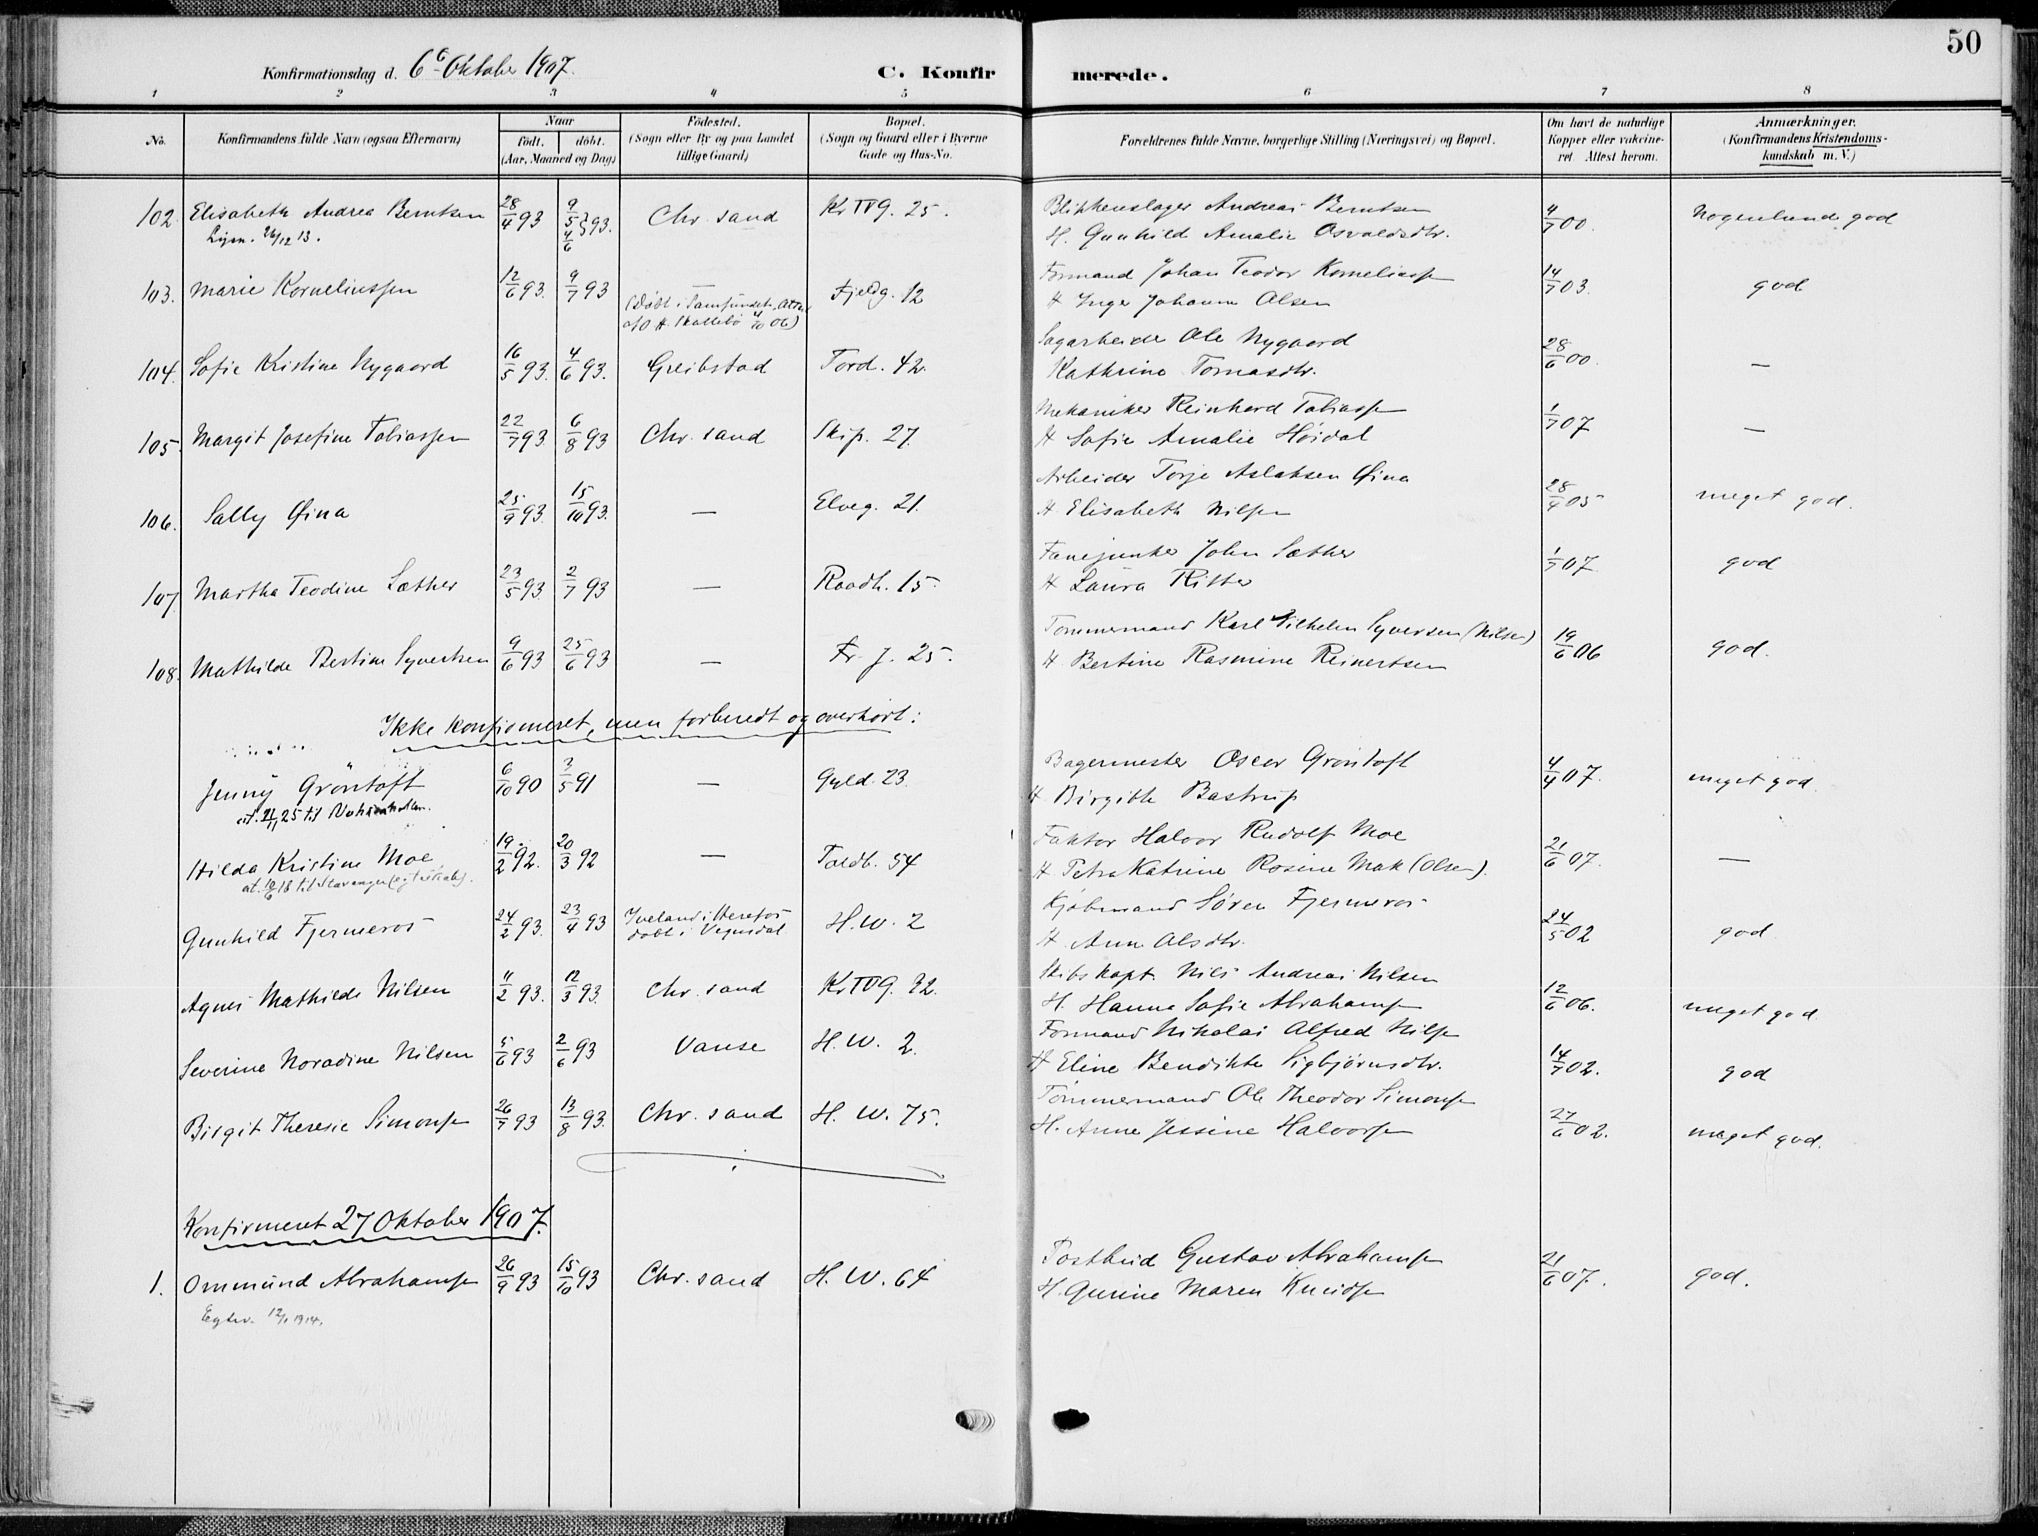 50
Konfirmationsdag d. 6 Oktober 1907.
C. Konfirmerede.
1 2 3 4 5 6 7 8
No.
Konfirmandens fulde Navn (ogsaa Efternavn)
Naar
født. døbt.
(Aar, Maaned og Dag)
Fødested.
(Sogn eller By og paa Landet
tillige Gaard)
Bopæl.
(Sogn og Gaard eller i Byerne
Gade og Hus-No.
Forældrenes fulde Navne, borgerlige Stilling (Næringsvei) og Bopæl.
Om havt de naturlige
Kopper eller vakcine-
ret. Attest herom.
Anmærkninger.
(Konfirmandens Kristendoms-
kundskab m. V.)
102. Elisabeth Andrea Berntsen 28/4 93 9/5 4/6 93. Chr. sand Kr IV G. 25. Blikkenslager Andreas Berntsen 4/7 00. Nogenlunde god
26/12 13. H. Gunhild Amalie Osvaldsdtr.
103. Marie Korneliussen 12/6 93. 9/7 93 — Fjeldg. 12 Formand Johan Teodor Korneliussen 14/7 03. god
(Døbt i Samfundet, Att.
af O. H. Skattebö 4/10 06) H Inger Johanne Olsen
104. Sofie Kristine Nygaard 16/5 93. 4/6 93. Greibstad Tord. 42. Sagarbeider Ole Nygaard 28/6 00. —
Kathrine Tomasdtr.
105. Margit Josefine Tobiassen 22/7 93. 6/8 93 Chr. sand Skip. 27. Mekaniker Reinhard Tobiassen 1/7 07 —
H Sofie Amalie Höidal
106. Sally Øina 25/9 93. 15/10 93. — Elveg. 21. Arbeider Torje Aslaksen Øina 28/9 05 meget god.
H Elisabeth Nilsen
107. Martha Teodine Sæther 23/5 93. 2/7 93 — Raadh. 15. Fanejunker John Sæther 1/7 07 god
H Laura Ritter
108. Mathilde Bertine Syvertsen 9/6 93 25/6 93 — Fr. J. 25. Tømmermand Karl Vilhelm Syversen (Nilsen) 19/6 06 god.
H Bertine Rasmine Reinertsen
Ikke konfirmeret, men forberedt og overhørt:
Jenny Gröntoft 6/10 90 3/5 91 — Gyld. 23. Bagermester Oscar Gröntoft 4/4 07. meget god.
H Birgitte Bastrup
Hilda Kristine Moe 19/2 92. 20/3 92 — Toldb. 54 Faktor Halvor Rudolf Moe 21/6 07. —
H Petra Katrine Rosine Mak (Olsen).
Gunhild Fjermeros 24/2 93. 23/4 93 Iveland i Herefos H. W. 2 Kjøbmand Søren Fjermeros 24/5 02 god
døbt i Vegusdal H. Ann Alsdtr.
Agnes Mathilde Nilsen 11/2 93. 12/3 93. Chr. sand Kr IV G. 32. Skibskapt. Nils Andreas Nilsen 12/6 06. meget god
H. Hanna Sofie Abrahamsen
Severine Noradine Nilsen 5/6 93 2/6 93 Vanse H. W. 2. Formand Nikolai Alfred Nilsen 14/7 02. god
H Eline Bendikte Sigbjørnsdtr.
Birgit Theresie Simonsen 26/7 93 13/8 93. Chr. sand H. W. 75. Tömmermand Ole Theodor Simonsen 27/6 02. meget god.
H. Anne Jessine Halvorsen
Konfirmeret 27 Oktober 1907.
1. Ommund Abrahamsen 26/9 93 15/10 93 Chr. sand H. W. 64 Postbud Gustav Abrahamsen 21/6 07. god.
Egtev. 12/1 1914. H. Gurine Maren Knudsen